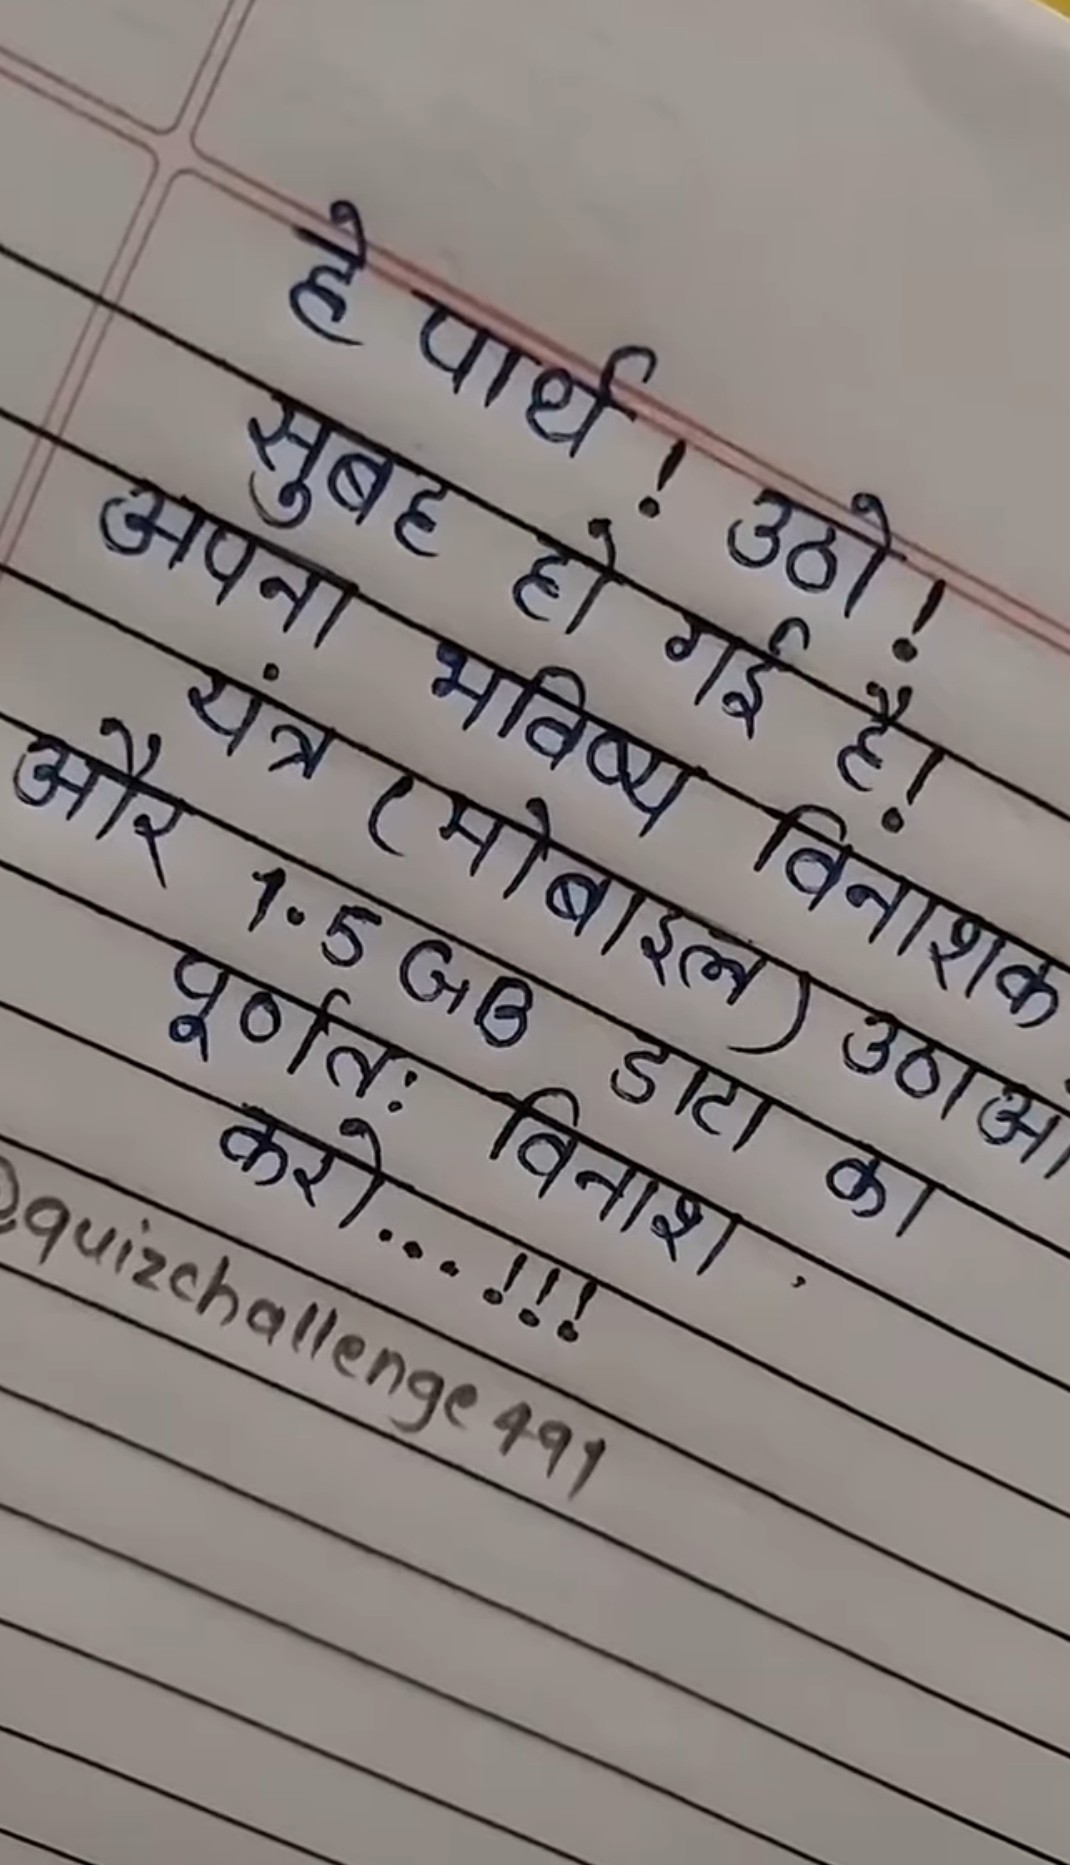 हे पार्थ ! उठो !
सुबह हो गई है!
अपना भविष्य विनाशक
यंत्र (मोबाइल) उठाओ
और 1.5 GB डाटा का
पूर्णतः विनाश
करो....!!!
@quizchallenge491